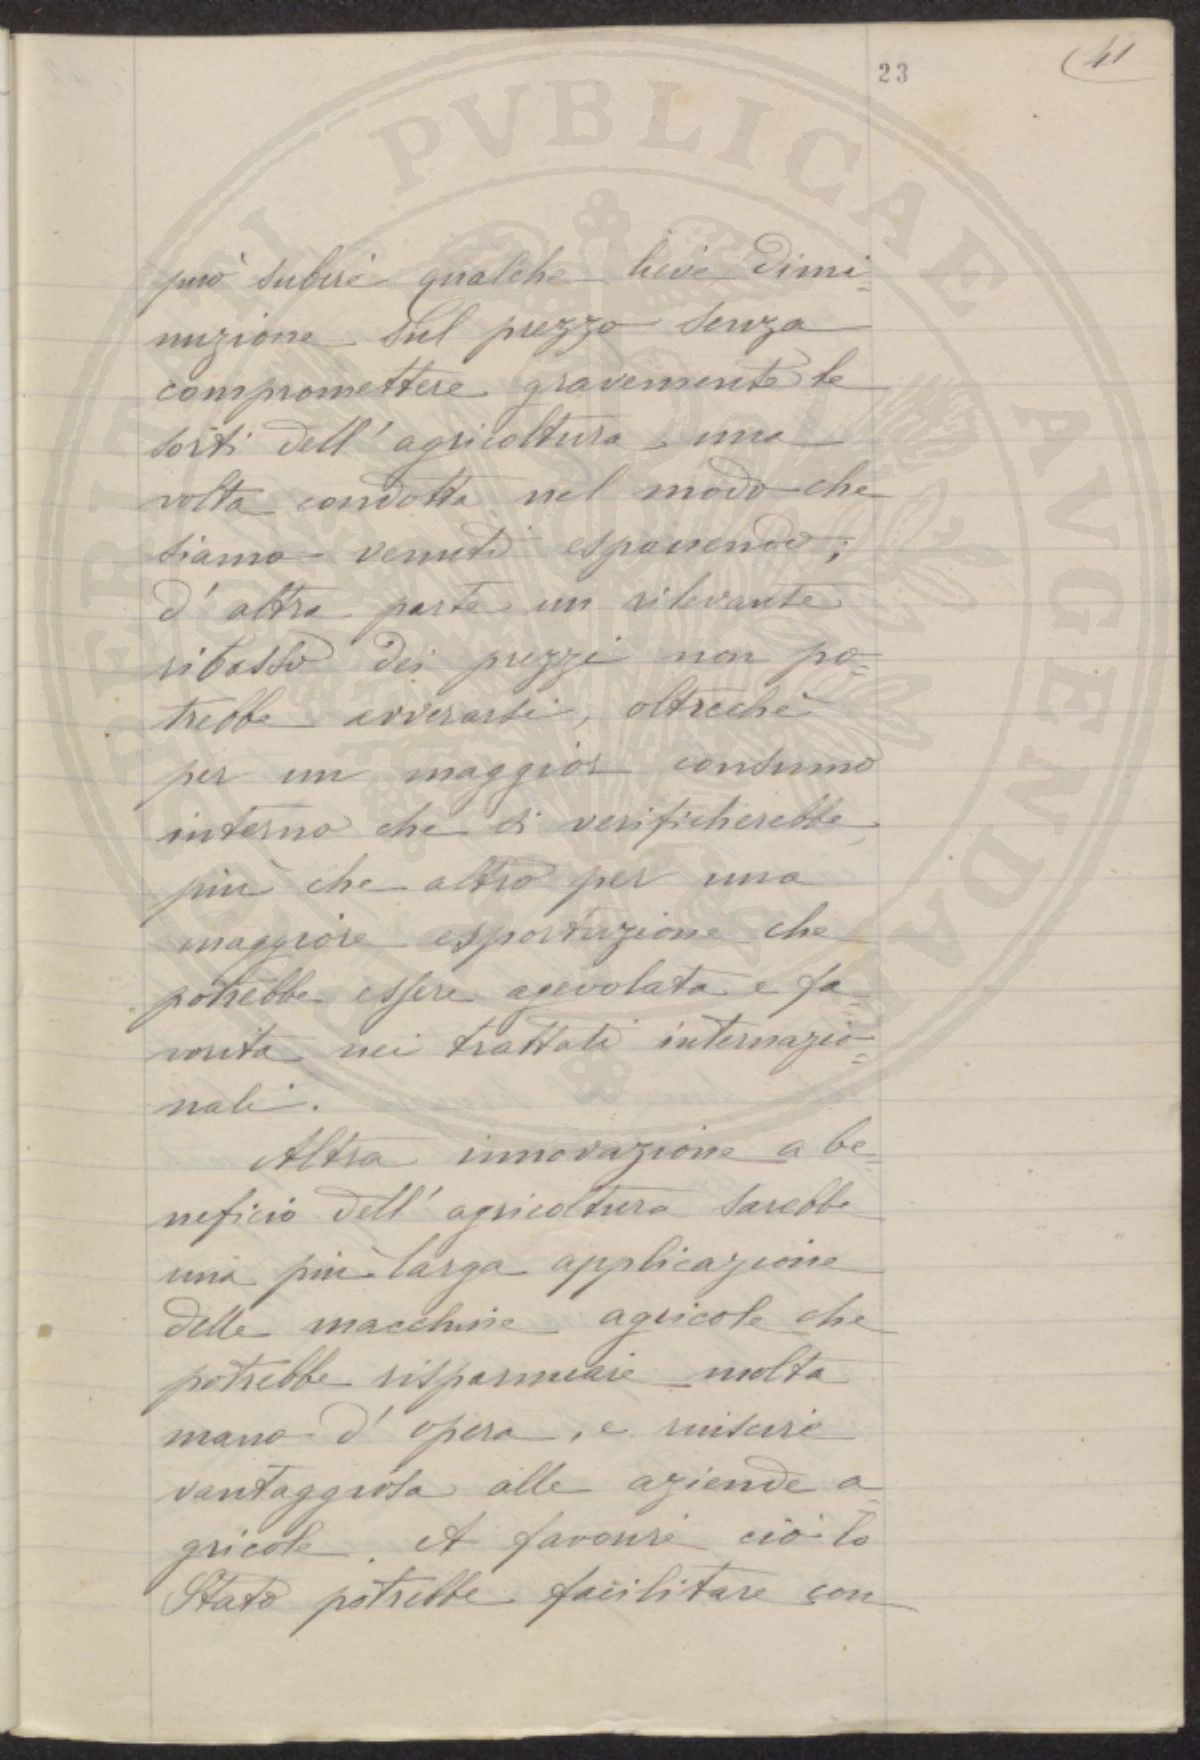 23
41
può subire qualche lieve dimi=
nuzione sul prezzo senza
compromettere gravemente le
sorti dell'agricoltura, una
volta condotta nel modo che
siamo venuti esponendo;
d'altra parte un rilevante
ribasso dei prezzi non po=
trebbe avverarsi, oltreché
per un maggior consumo
interno che si verificherebbe,
più che altro per una
maggiore esportazione che
potrebbe essere agevolata e fa=
vorita nei trattati internazio=
nali.
Altra innovazione a be=
neficio dell'agricoltura sarebbe
una più larga applicazione
delle macchine agricole che
potrebbe risparmiare molta
mano d'opera, e riuscire
vantaggiosa alle aziende a=
gricole. A favorire ciò lo
Stato potrebbe facilitare con
REI PVBLICAE AVGENDAE